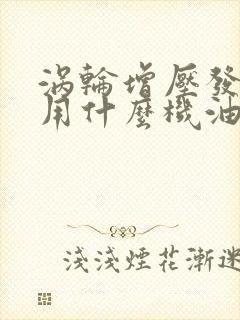 涡輪增壓發
用什麼機油
淺淺煙花漸迷